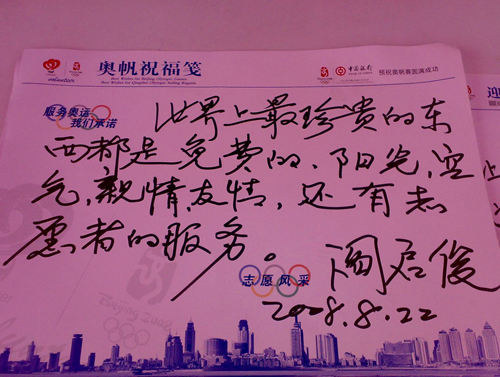 奥帆祝福笺
Best Wishes for Beijing Olympic Games
Best Wishes for Qingdao Olympic Sailing Regatta
中国银行
预祝奥帆赛圆满成功
服务奥运
我们承诺
世界上最珍贵的东
西都是免费的、阳光,空
气,亲情,友情,还有志
愿者的服务。
阎启俊
志愿风采
2008.8.22
迎